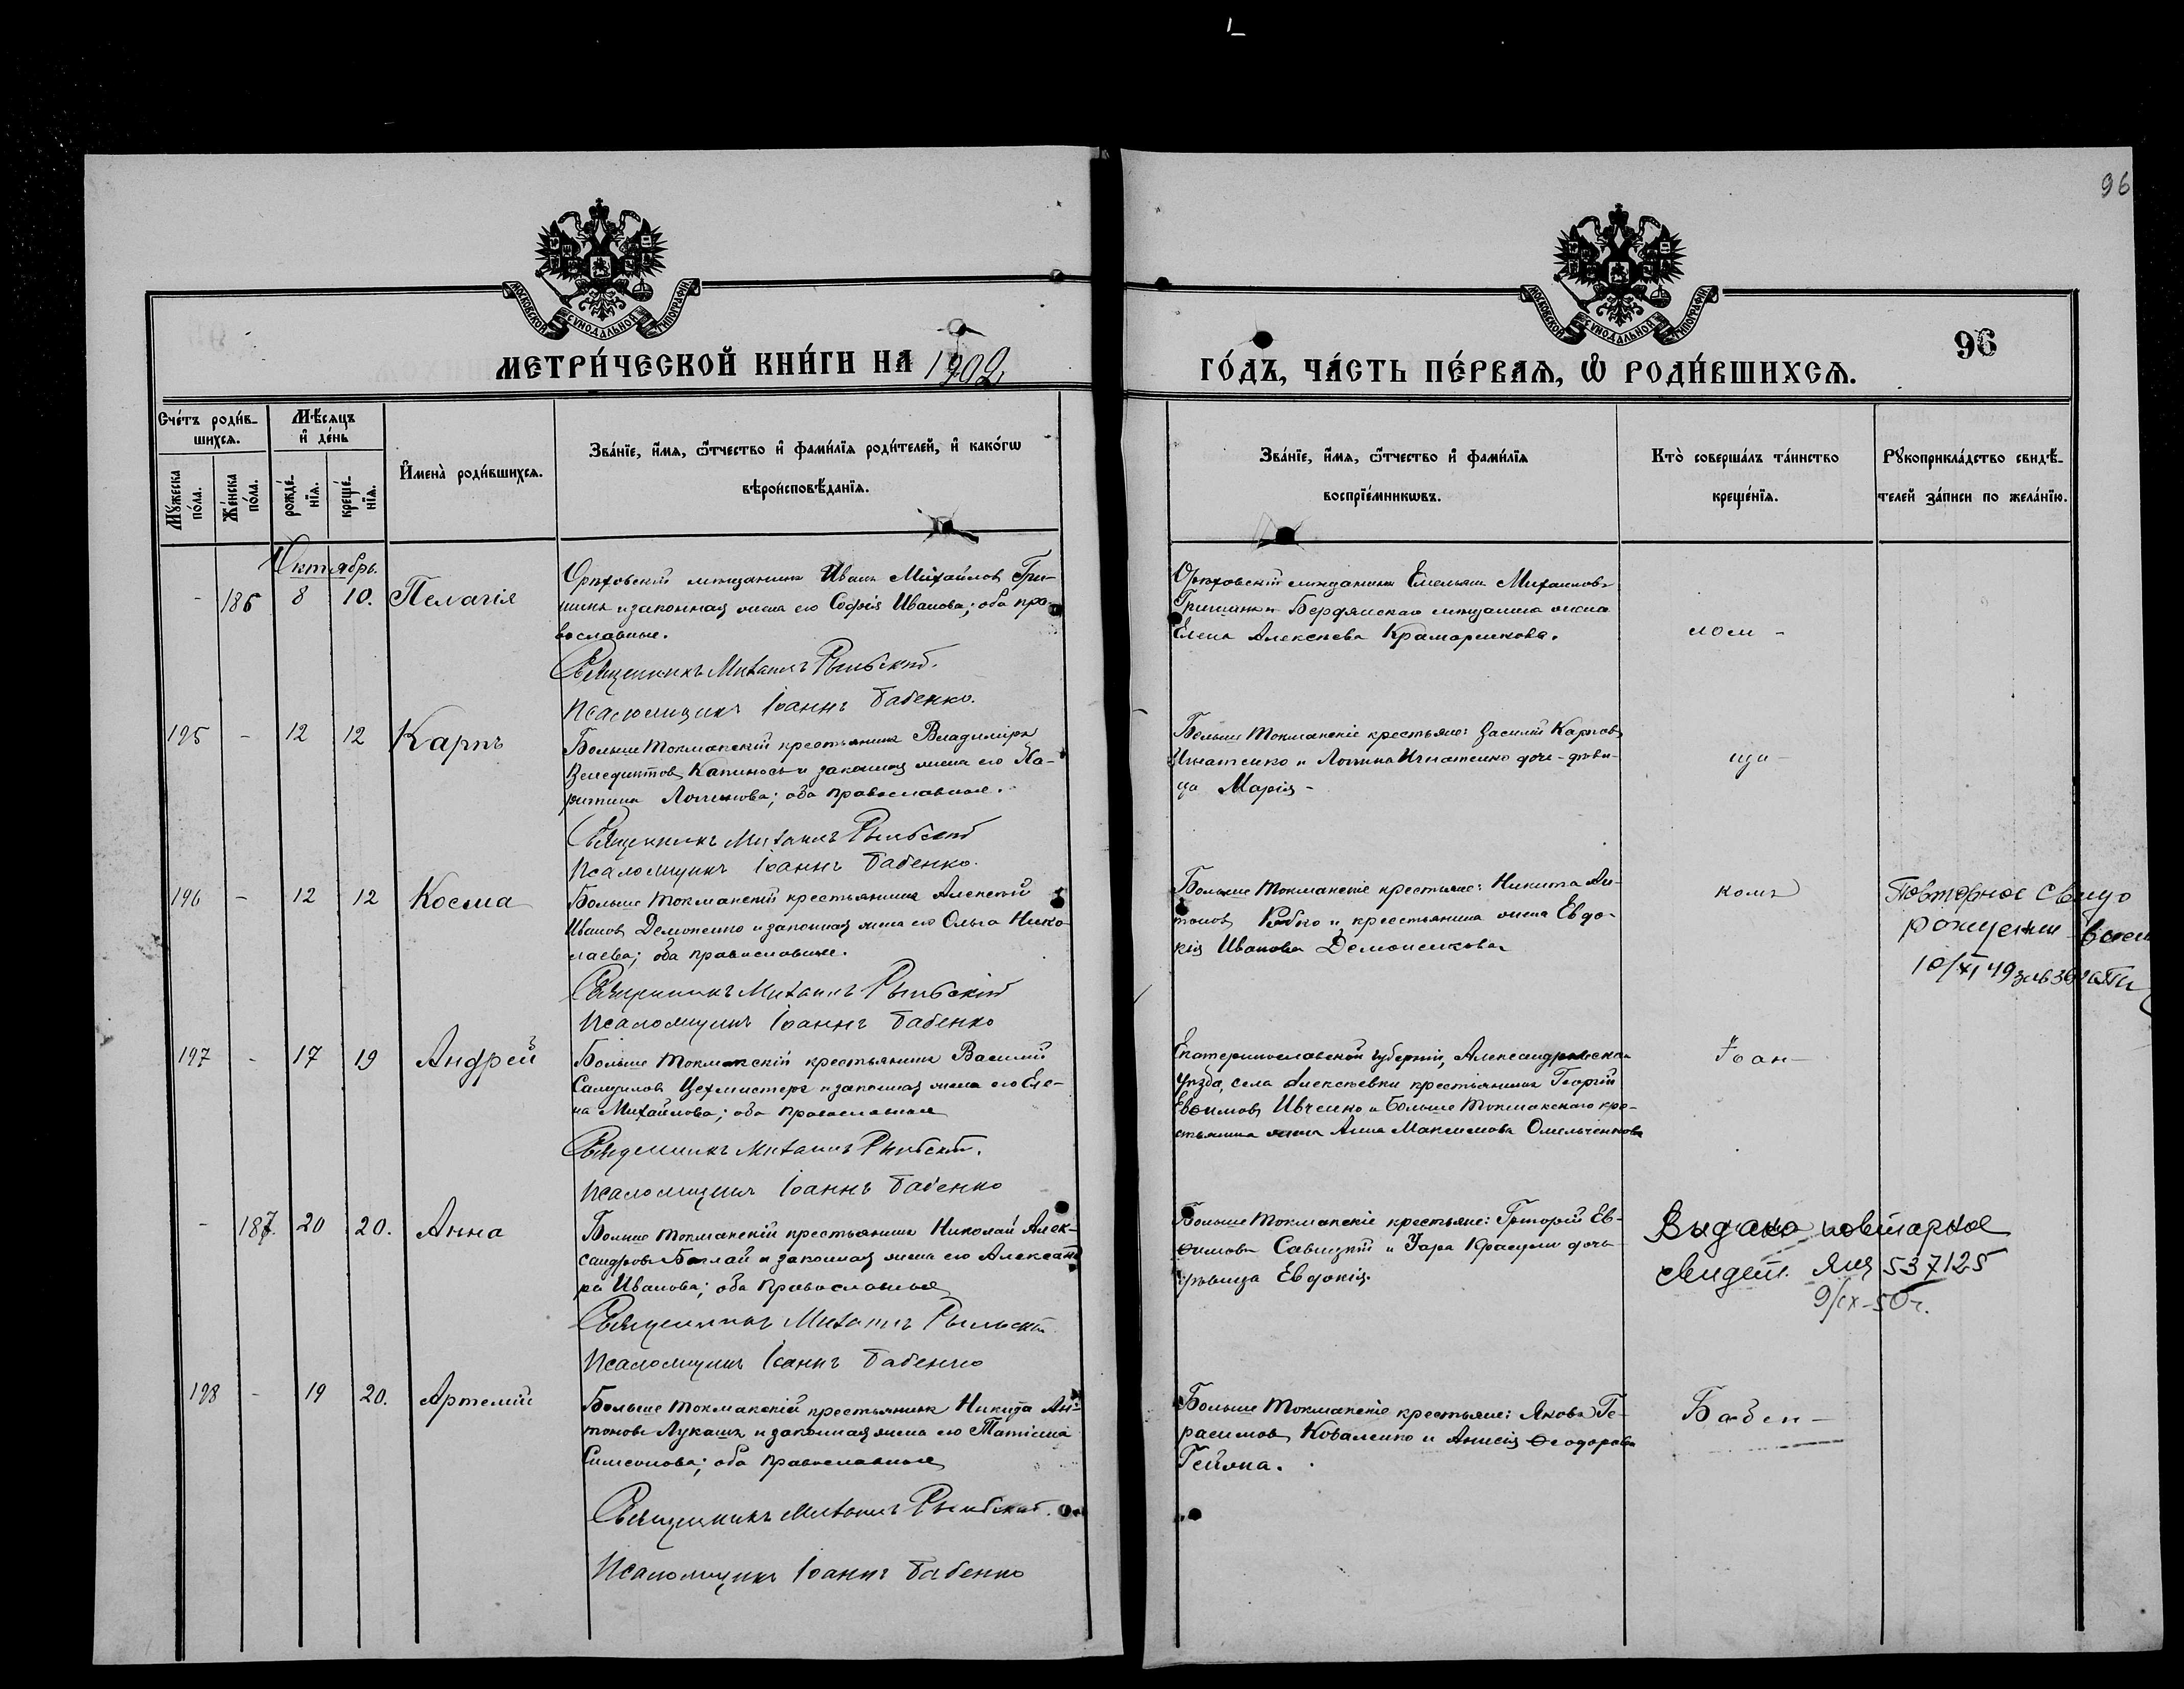 96
МОСКОВСКОЙ СѴНОДАЛЬНОЙ ТИПОГРАФІИ
МОСКОВСКОЙ СѴНОДАЛЬНОЙ ТИПОГРАФІИ
МЕТРИ́ЧЕСКОЙ КНИ́ГИ НА 1902
ГО́ДЪ, ЧА́СТЬ ПЕ́РВАѦ, Ѡ҆ РОДИ́ВШИХСѦ.
96
Сче́тъ роди́в-
шихсѧ.
Мѣ́сѧцъ
и҆ де́нь
Мꙋ́жеска по́ла.
Же́нска по́ла.
рожде́-нїѧ.
креще́-нїѧ.
И҆мена̀ роди́вшихсѧ.
Зва́нїе, и҆́мѧ, ѻ҆́тчество и҆ фами́лїѧ роди́телей, и҆ како́гѡ
вѣроисповѣ́данїѧ.
Зва́нїе, и҆́мѧ, ѻ҆́тчество и҆ фами́лїѧ
воспрїе́мникѡвъ.
Кто̀ соверша́лъ та́инство
креще́нїѧ.
Рꙋкоприкла́дство свидѣ́-
телей за́писи по жела́нїю.
Октябрь.
- 186 8 10. Пелагія
Орѣховскій мѣщанинъ Иванъ Михайловъ Гри-
шинъ и законная жена его Софія Иванова; оба пра-
вославные.
Священникъ Михаилъ Рыльскій.
Псаломщикъ Іоаннъ Бабенко.
Орѣховскій мѣщанинъ Емельянъ Михаиловъ
Гришинъ и Бердянскаго мѣщанина жена
Елена Алексѣева Крамаренкова.
лом -
195 - 12 12 Карпъ
Больше Токмакскій крестьянинъ Владиміръ
Венедиктовъ Капиносъ и законная жена его Ха-
ритина Логинова; оба православные.
Священникъ Михаилъ Рыльскій
Псаломщикъ Іоаннъ Бабенко.
Больше Токмакскіе крестьяне: Василій Карповъ
Игнатенко и Логина Игнатенко дочь-дѣви-
ца Марія -
196 - 12 12 Косма
Больше Токмакскій крестьянинъ Алексѣй
Ивановъ Демоненко и законная жена его Ольга Нико-
лаева; оба православные.
Священникъ Михаилъ Рыльскій
Псаломщикъ Іоаннъ Бабенко
Больше Токмакскіе крестьяне: Никита Ан-
тоновъ и крестьянина жена Евдо-
кія Иванова Демоненкова
комъ
Повторное свидо
рождении
10/XI 49
197 - 17 19 Андрей
Больше Токмакскій крестьянинъ Василій
Самуиловъ Цехмистеръ и законная жена его Еле-
на Михайлова; оба православные
Священникъ Михаилъ Рыльскій.
Псаломщикъ Іоаннъ Бабенко
Екатеринославской губерніи, Александровскаго
уѣзда, села Алексѣевки крестьянинъ Георгій
Евѳимовъ Ивченко и Больше Токмакскаго кре-
стьянина жена Анна Максимова Омельченкова
Іоан-
- 187. 20 20. Анна
Больше Токмакскій крестьянинъ Николай Алек-
сандровъ Балай и законная жена его Александ
ра Иванова; оба православные
Священникъ Михаилъ Рыльскій
Псаломщикъ Іоаннъ Бабенко
Больше Токмакскіе крестьяне: Григорій Ев-
ѳимовъ Савицкій и дочь
дѣвица Евдокія.
Выдано повторное
свидет. ЯЩ 537125
9/IX-50 г.
198 - 19 20. Артемій
Больше Токмакскій крестьянинъ Никита Ан-
тоновъ Лукашъ и законная жена его Татіана
Симеонова; оба православные
Священникъ Михаилъ Рыльскій.
Псаломщикъ Іоаннъ Бабенко
Больше Токмакскіе крестьяне: Яковъ Ге-
расимовъ Коваленко и Анисія Ѳеодорова
Гейяна.
Бабен-